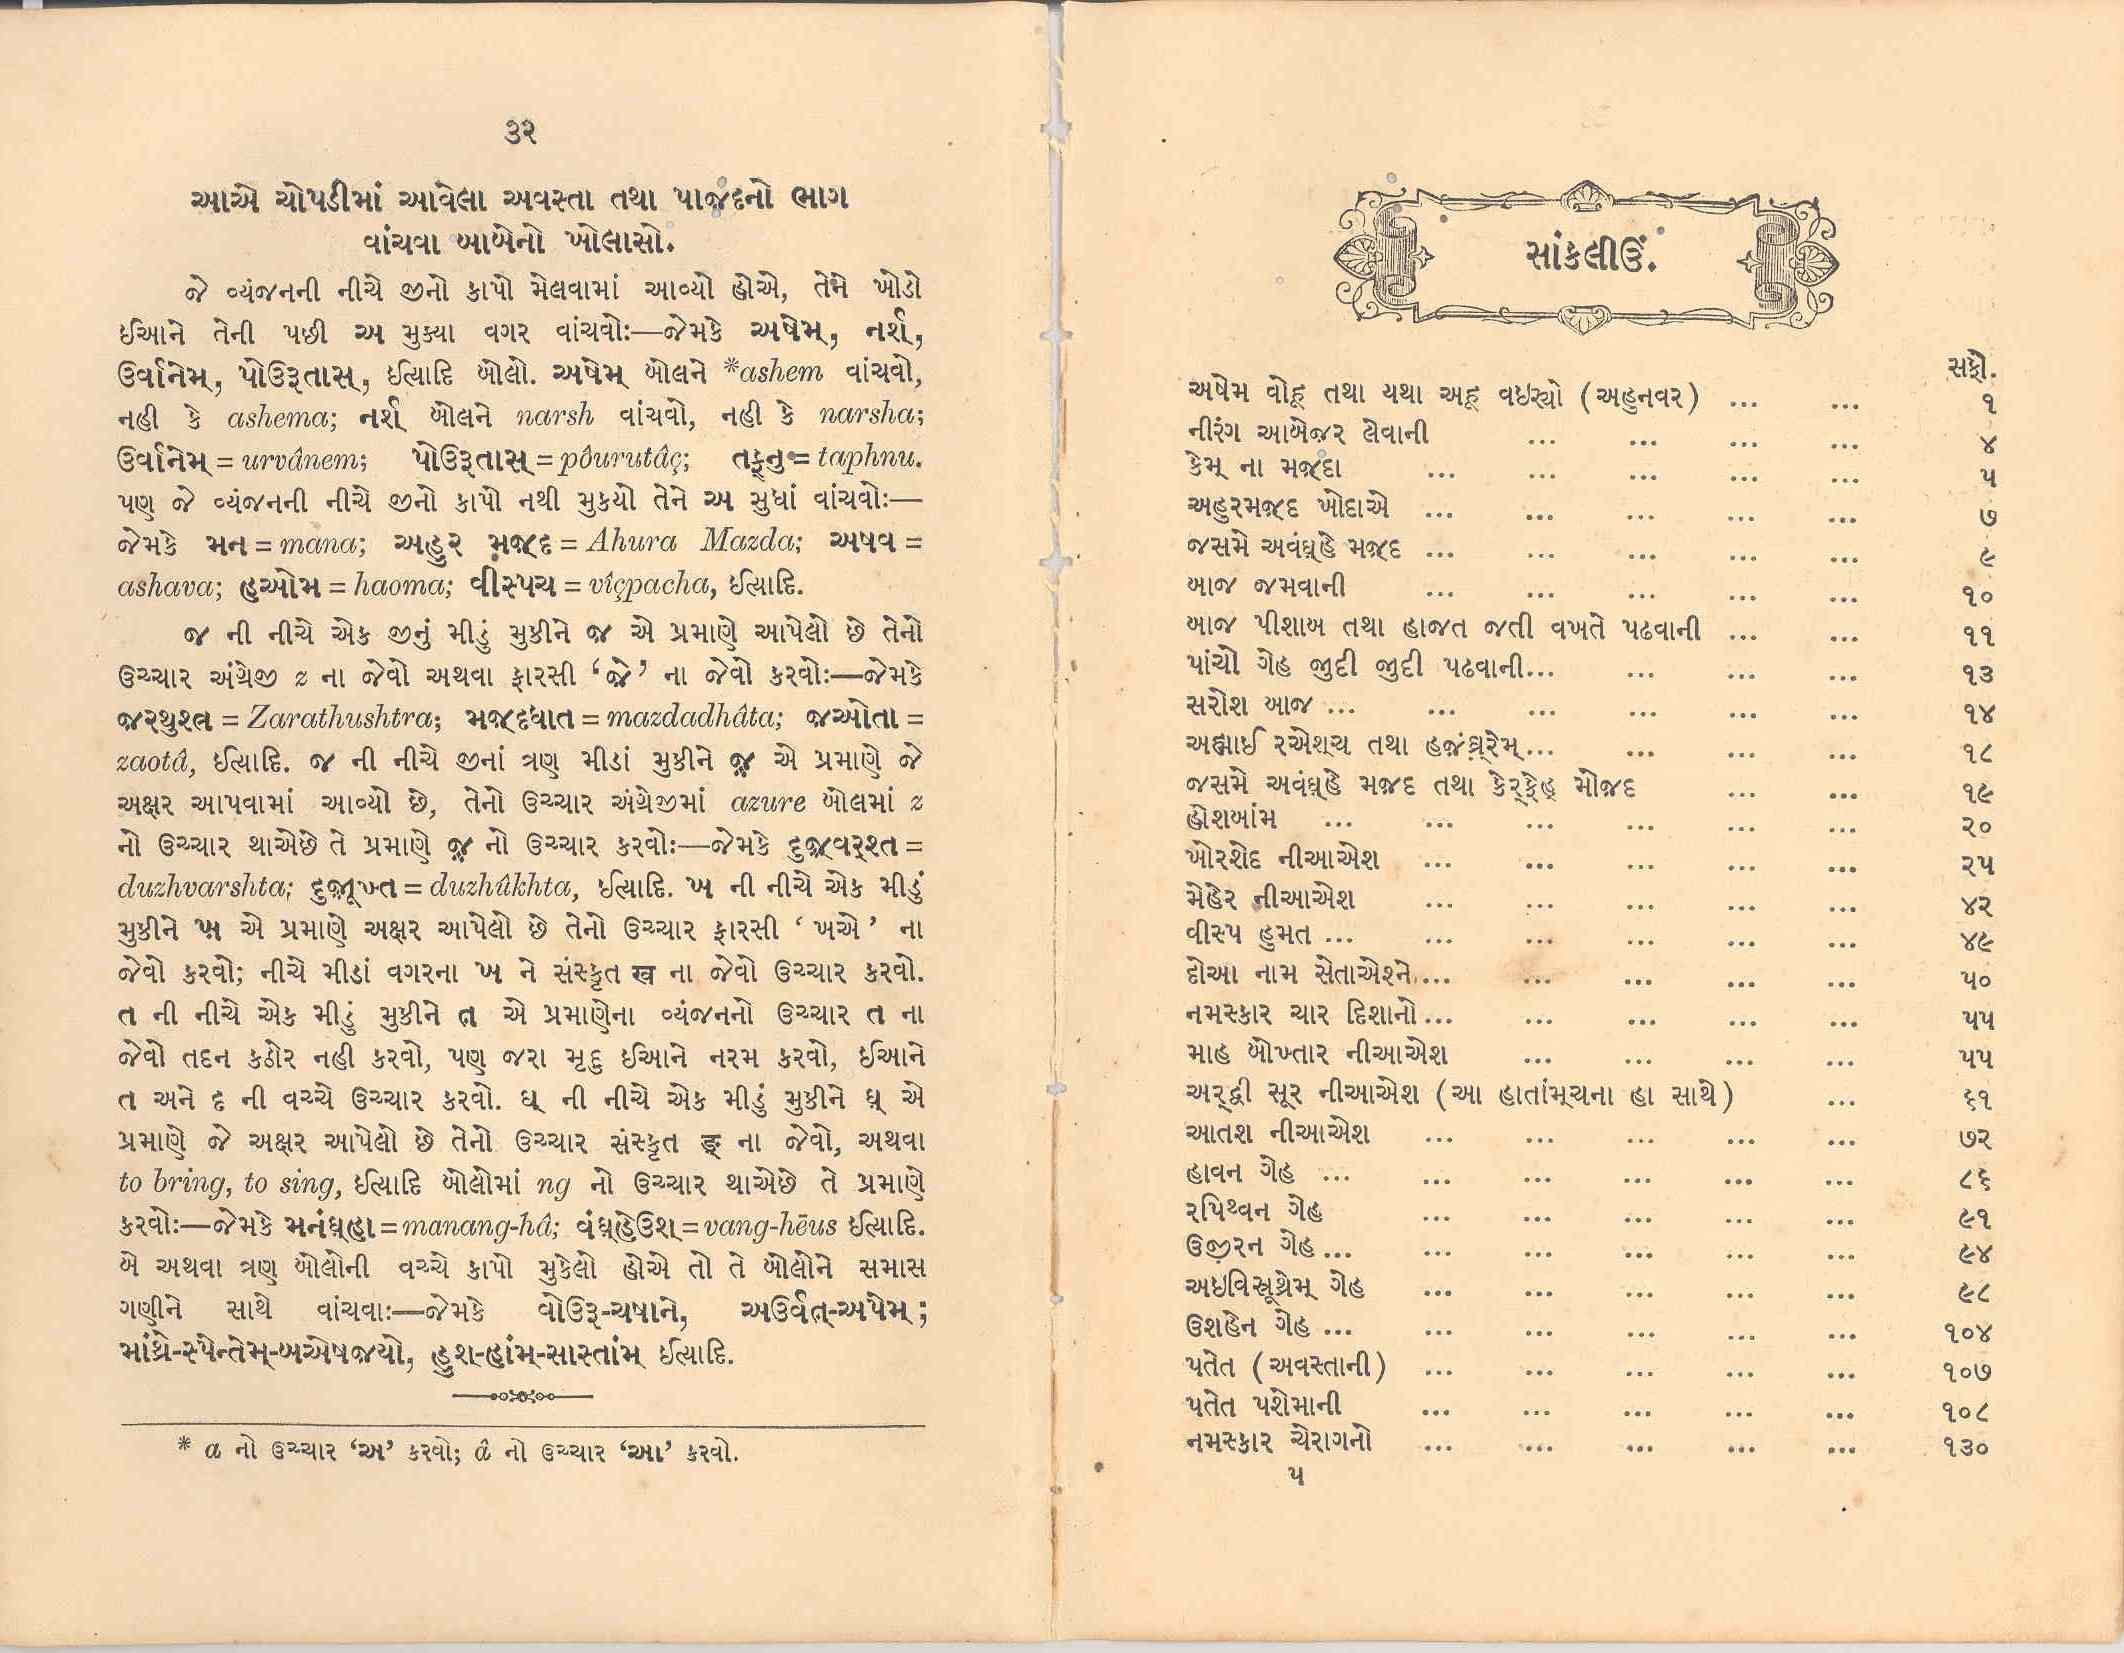 ૩૨
આએ ચોપડીમાં આવેલા અવસ્તા તથા પાજ઼ંદનો ભાગ
વાંચવા બાબેનો ખોલાસો.
જે વ્યંજનની નીચે જીનો કાપો મેલવામાં આવ્યો હોએ, તેને ખોડો
ઈઆને તેની પછી અ મુક્યા વગર વાંચવોઃ—જેમકે અષેમ્, નર્શ્,
ઉર્વાનેમ્, પોઉરૂતાસ્, ઈત્યાદિ બોલો. અષેમ્ બોલને *ashem વાંચવો,
નહી કે ashema; નર્શ્ બોલને narsh વાંચવો, નહી કે narsha;
ઉર્વાનેમ્ = urvânem; પોઉરૂતાસ્ = pôurutâç; તફ્નુ = taphnu.
પણ જે વ્યંજનની નીચે જીનો કાપો નથી મુકયો તેને અ સુધાં વાંચવોઃ—
જેમકે મન = mana; અહુર મજ઼્દ = Ahura Mazda; અષવ =
ashava; હઓમ = haoma; વીસ્પચ = vîçpacha, ઈત્યાદિ.
જ ની નીચે એક જીનું મીડું મુકીને જ઼ એ પ્રમાણે આપેલો છે તેનો
ઉચ્ચાર અંગ્રેજી z ના જેવો અથવા ફારસી ‘જ઼ે’ ના જેવો કરવોઃ—જેમકે
જ઼રથુશ્ત્ર = Zarathushtra; મજ઼્દધાત = mazdadhâta; જ઼ઓતા =
zaotâ, ઈત્યાદિ. જ ની નીચે જીનાં ત્રણ મીડાં મુકીને જ઼ એ પ્રમાણે જે
અક્ષર આપવામાં આવ્યો છે, તેનો ઉચ્ચાર અંગ્રેજીમાં azure બોલમાં z
નો ઉચ્ચાર થાએછે તે પ્રમાણે જ઼ નો ઉચ્ચાર કરવોઃ—જેમકે દુજ઼્વર્શ્ત =
duzhvarshta; દુજ઼ૂખ્ત = duzhûkhta, ઈત્યાદિ. ખ ની નીચે એક મીડું
મુકીને ખ઼ એ પ્રમાણે અક્ષર આપેલો છે તેનો ઉચ્ચાર ફારસી ‘ ખએ ’ ના
જેવો કરવો; નીચે મીડાં વગરના ખ ને સંસ્કૃત ख ના જેવો ઉચ્ચાર કરવો.
ત ની નીચે એક મીડું મુકીને ત઼ એ પ્રમાણેના વ્યંજનનો ઉચ્ચાર ત ના
જેવો તદન કઠોર નહી કરવો, પણ જરા મૃદુ ઈઆને નરમ કરવો, ઈઆને
ત અને દ ની વચ્ચે ઉચ્ચાર કરવો. ઘ્ ની નીચે એક મીડું મુકીને ઘ઼્ એ
પ્રમાણે જે અક્ષર આપેલો છે તેનો ઉચ્ચાર સંસ્કૃત ङ् ના જેવો, અથવા
to bring, to sing, ઈત્યાદિ બોલોમાં ng નો ઉચ્ચાર થાએછે તે પ્રમાણે
કરવોઃ—જેમકે મનંઘ઼્હા = manang-hâ; વંઘ઼્હેઉશ્ = vang-hēus ઈત્યાદિ.
બે અથવા ત્રણ બોલોની વચ્ચે કાપો મુકેલો હોએ તો તે બોલોને સમાસ
ગણીને સાથે વાંચવાઃ—જેમકે વોઉરૂ-ચષાને, અઉર્વત઼્-અપેમ્;
માંથ્રે-સ્પેન્તેમ્-બએષજ઼યો, હુશ્-હાંમ્-સાસ્તાંમ્ ઈત્યાદિ.
* a નો ઉચ્ચાર ‘અ’ કરવો; â નો ઉચ્ચાર ‘આ’ કરવો.
સાંકલીઉં.
સફો.
અષેમ વોહૂ તથા યથા અહૂ વઇર્યો (અહુનવર) ... ... ૧
નીરંગ આબેજ઼ર લેવાની ... ... ... ... ૪
કેમ્ ના મજ઼્દા ... ... ... ... ... ૫
અહુરમજ઼્દ ખોદાએ ... ... ... ... ... ૭
જસમે અવંઘ઼્હે મજ઼્દ ... ... ... ... ... ૯
બાજ જમવાની ... ... ... ... ... ૧૦
બાજ પીશાબ તથા હાજત જતી વખતે પઢવાની ... ... ૧૧
પાંચો ગેહ જુદી જુદી પઢવાની... ... ... ... ૧૩
સરોશ બાજ ... ... ... ... ... ... ૧૪
અહ્માઈ રએશ્ચ તથા હજ઼ંઘ઼્રેમ્... ... ... ... ૧૮
જસમે અવંઘ઼્હે મજ઼્દ તથા કેર્ફેહ્ મોજ઼્દ ... ... ૧૯
હોશબાંમ ... ... ... ... ... ... ૨૦
ખોરશેદ નીઆએશ ... ... ... ... ... ૨૫
મેહેર નીઆએશ ... ... ... ... ... ૪૨
વીસ્પ હુમત ... ... ... ... ... ... ૪૯
દોઆ નામ સેતાએશ્ને.... ... ... ... ... ૫૦
નમસ્કાર ચાર દિશાનો... ... ... ... ... ૫૫
માહ બોખ્તાર નીઆએશ ... ... ... ... ૫૫
અર્દ્વી સૂર નીઆએશ (આ હાતાંમ્ચના હા સાથે) ... ૬૧
આતશ નીઆએશ ... ... ... ... ... ૭૨
હાવન ગેહ ... ... ... ... ... ... ૮૬
રપિથ્વન ગેહ ... ... ... ... ... ૯૧
ઉજ઼ીરન ગેહ ... ... ... ... ... ... ૯૪
અઇવિસ્રૂથ્રેમ્ ગેહ ... ... ... ... ... ૯૮
ઉશહેન ગેહ ... ... ... ... ... ... ૧૦૪
પતેત (અવસ્તાની) ... ... ... ... ... ૧૦૭
પતેત પશેમાની ... ... ... ... ... ૧૦૮
નમસ્કાર ચેરાગનો ... ... ... ... ... ૧૩૦
૫